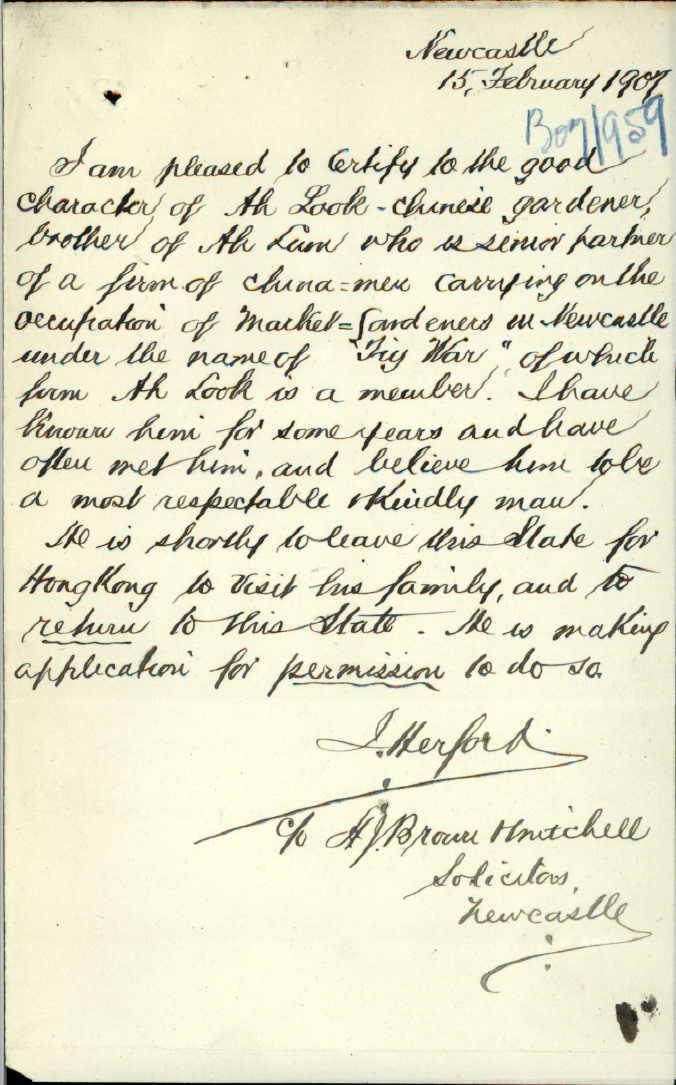 Newcastle
15, February 1907
B07/959
I am pleased to Certify to the good
character of Ah Look - chinese gardener,
brother of Ah Lum who is senior partner
of a firm of china=men carrying on the
occupation of Market=Gardeners in Newcastle
under the name of "Tig War" of which
firm Ah Look is a member. I have
known him for some years and have
often met him, and believe him to be
a most respectable & Kindly man.
He is shortly to leave this State for
Hong Kong to visit his family, and to
return to this State. He is making
application for permission to do so.
J. Herford.
c/o A J. Brown & Mitchell
Solicitors,
Newcastle